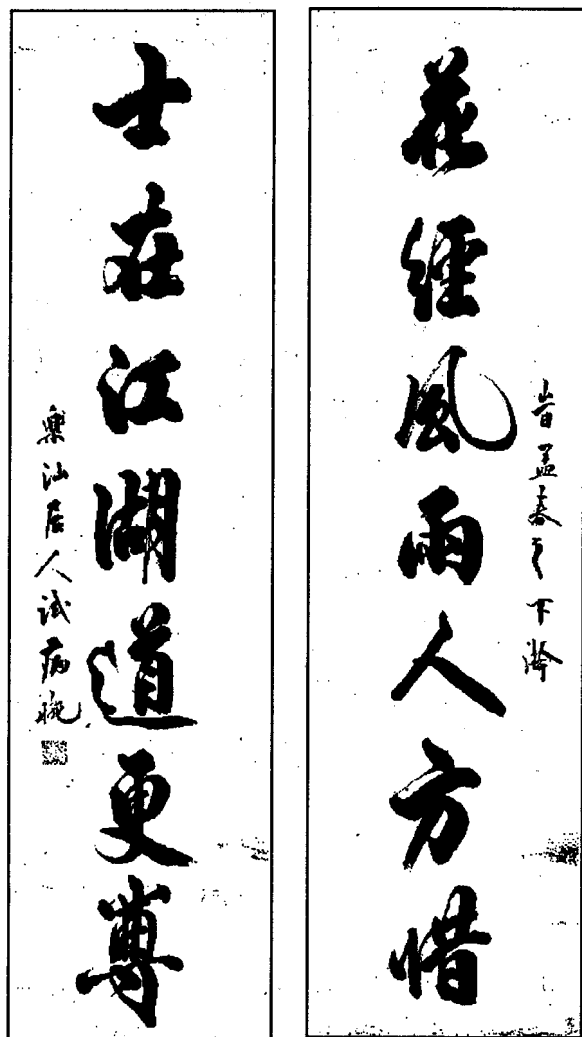 花經風雨人方惜
孟春之下澣
士在江湖道更尊
樂山居人試病腕